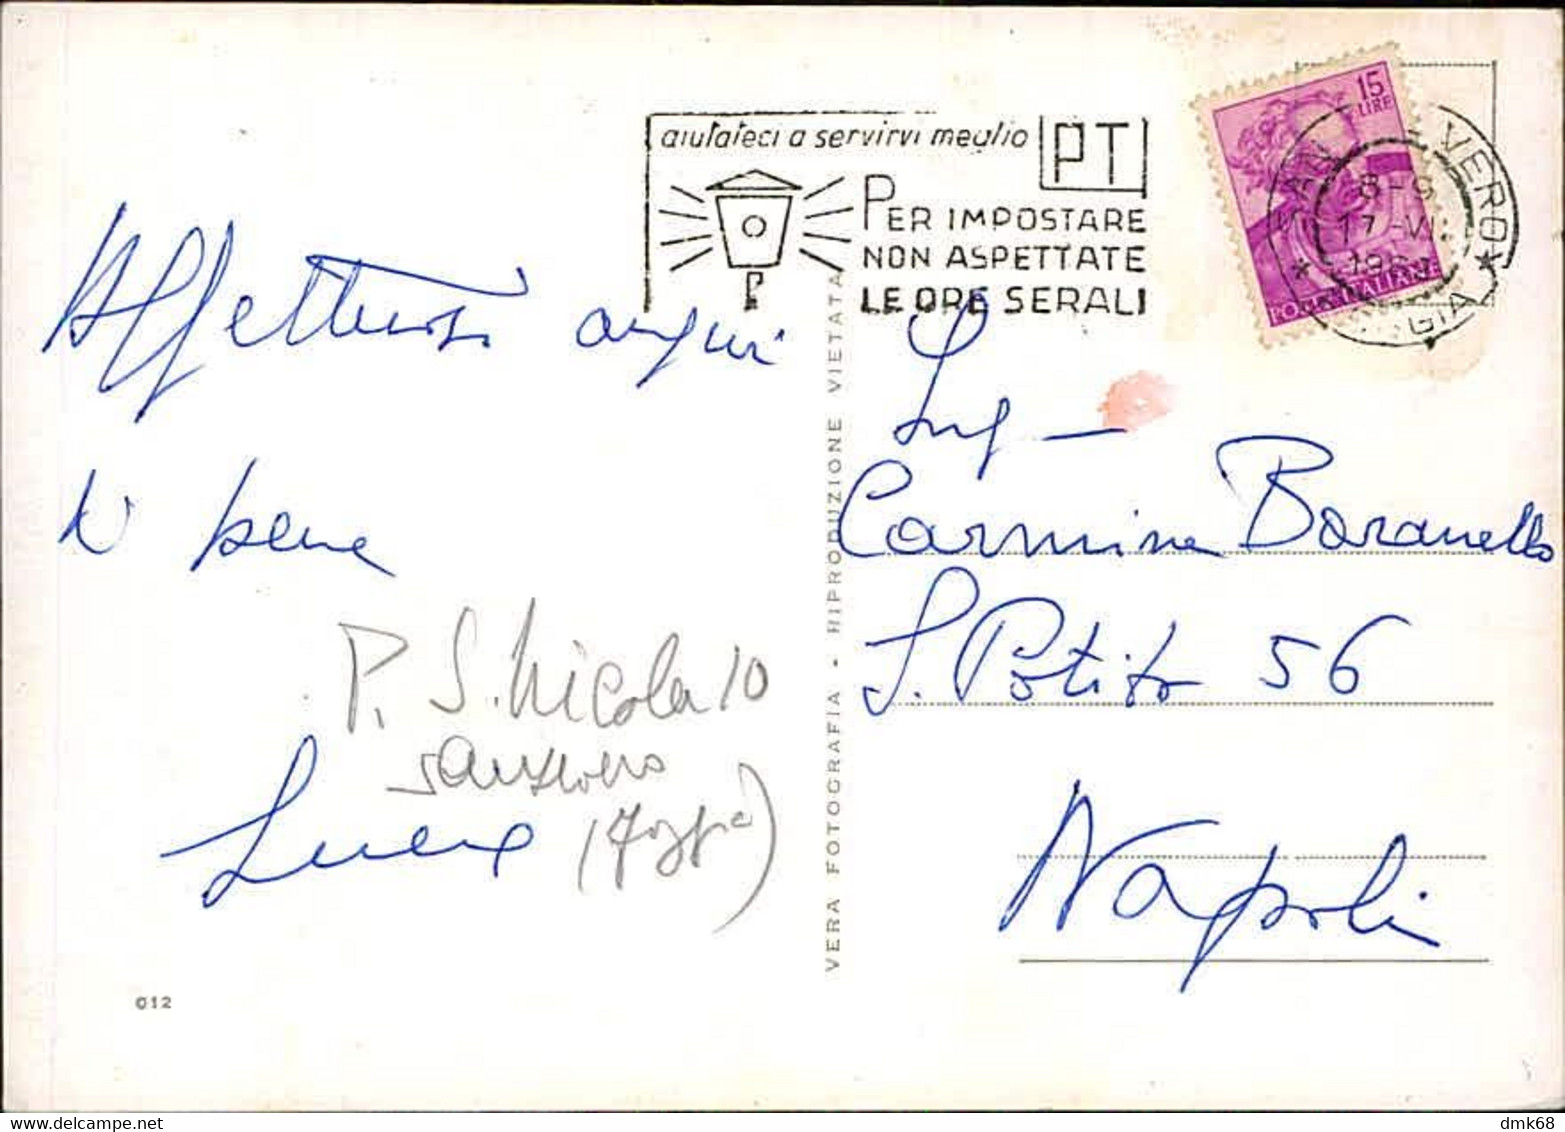 aiutateci a servirvi meglio
PT
PER IMPOSTARE
NON ASPETTATE
LE ORE SERALI
15
LIRE
POSTE ITALIANE
SAN
VERO
8-9
17-VI
196
GIA
Affettuosi auguri
di bene
Luca
P. S. Nicola 10
Sansevero
(Foggia)
Ing
Carmine Boranello
S. Potito 56
Napoli
VERA FOTOGRAFIA - RIPRODUZIONE VIETATA
012
dmk68